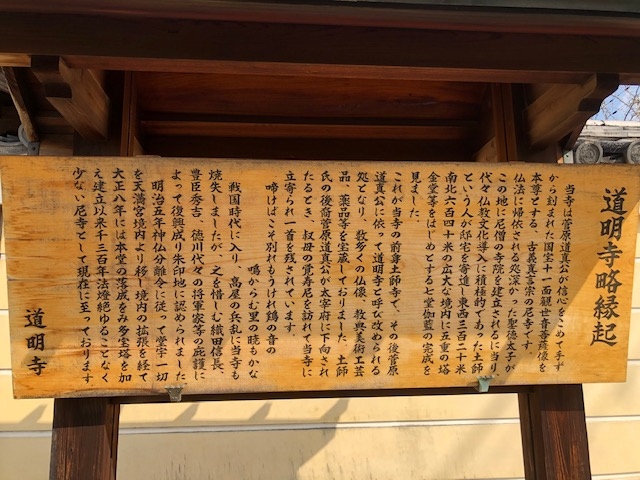 道明寺略縁起
当寺は菅原道真公が信心をこめて手ず
から刻まれた国宝十一面観世音菩薩像を
本尊とする、古義真言宗の尼寺です。
仏法に帰依される処深かった聖徳太子が
この地に尼僧の寺院を建立されるに当り
代々仏教文化導入に積極的であった土師
という人が邸宅を寄進し東西三百二十米
南北六百四十米の広大な境内に五重の塔
金堂等をはじめとする七堂伽藍の完成を
見ました。
これが当寺の前身土師寺で、その後菅原
道真公に依って道明寺と呼び改められる
処となり、数多くの仏像、教典美術工芸
品、薬品等を宝蔵しておりました。土師
氏の後裔菅原道真公が太宰府に下向され
たるとき、叔母の覚寿尼を訪れて当寺に
立寄られ一首を残されています。
啼けばこそ別れもうけれ鶏の音の
鳴からむ里の暁もかな
戦国時代に入り、高屋の兵乱に当寺も
焼失しましたが、之を惜しむ織田信長、
豊臣秀吉、徳川代々の将軍家等の庇護に
よって復興成り朱印地に認められました
明治五年神仏分離令に従って堂宇一切
を天満宮境内より移し境内の拡張を経て
大正八年には本堂の落成をみ多宝塔を加
え建立以来千三百年法燈絶ゆることなく
少ない尼寺として現在に至っております
道明寺